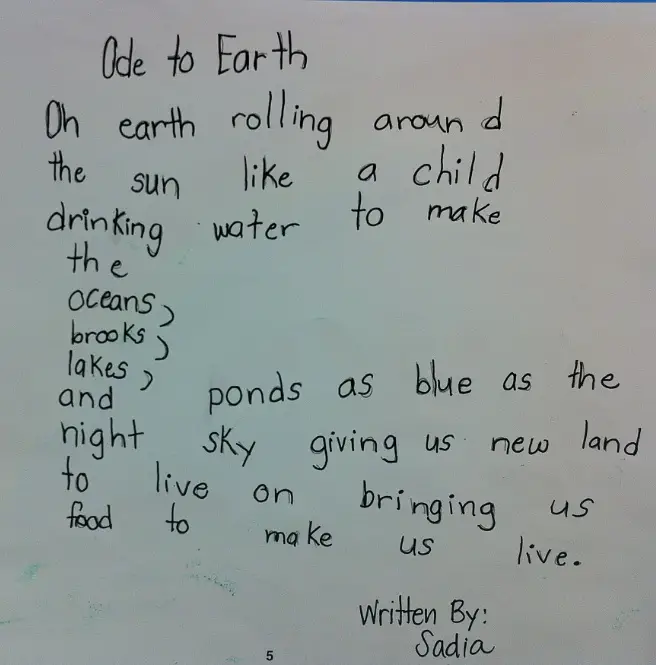 Ode to Earth
Oh earth rolling around
the sun like a child
drinking water to make
the
oceans,
brooks,
lakes,
and ponds as blue as the
night sky giving us new land
to live on bringing us
food to make us live.
Written By:
Sadia
5